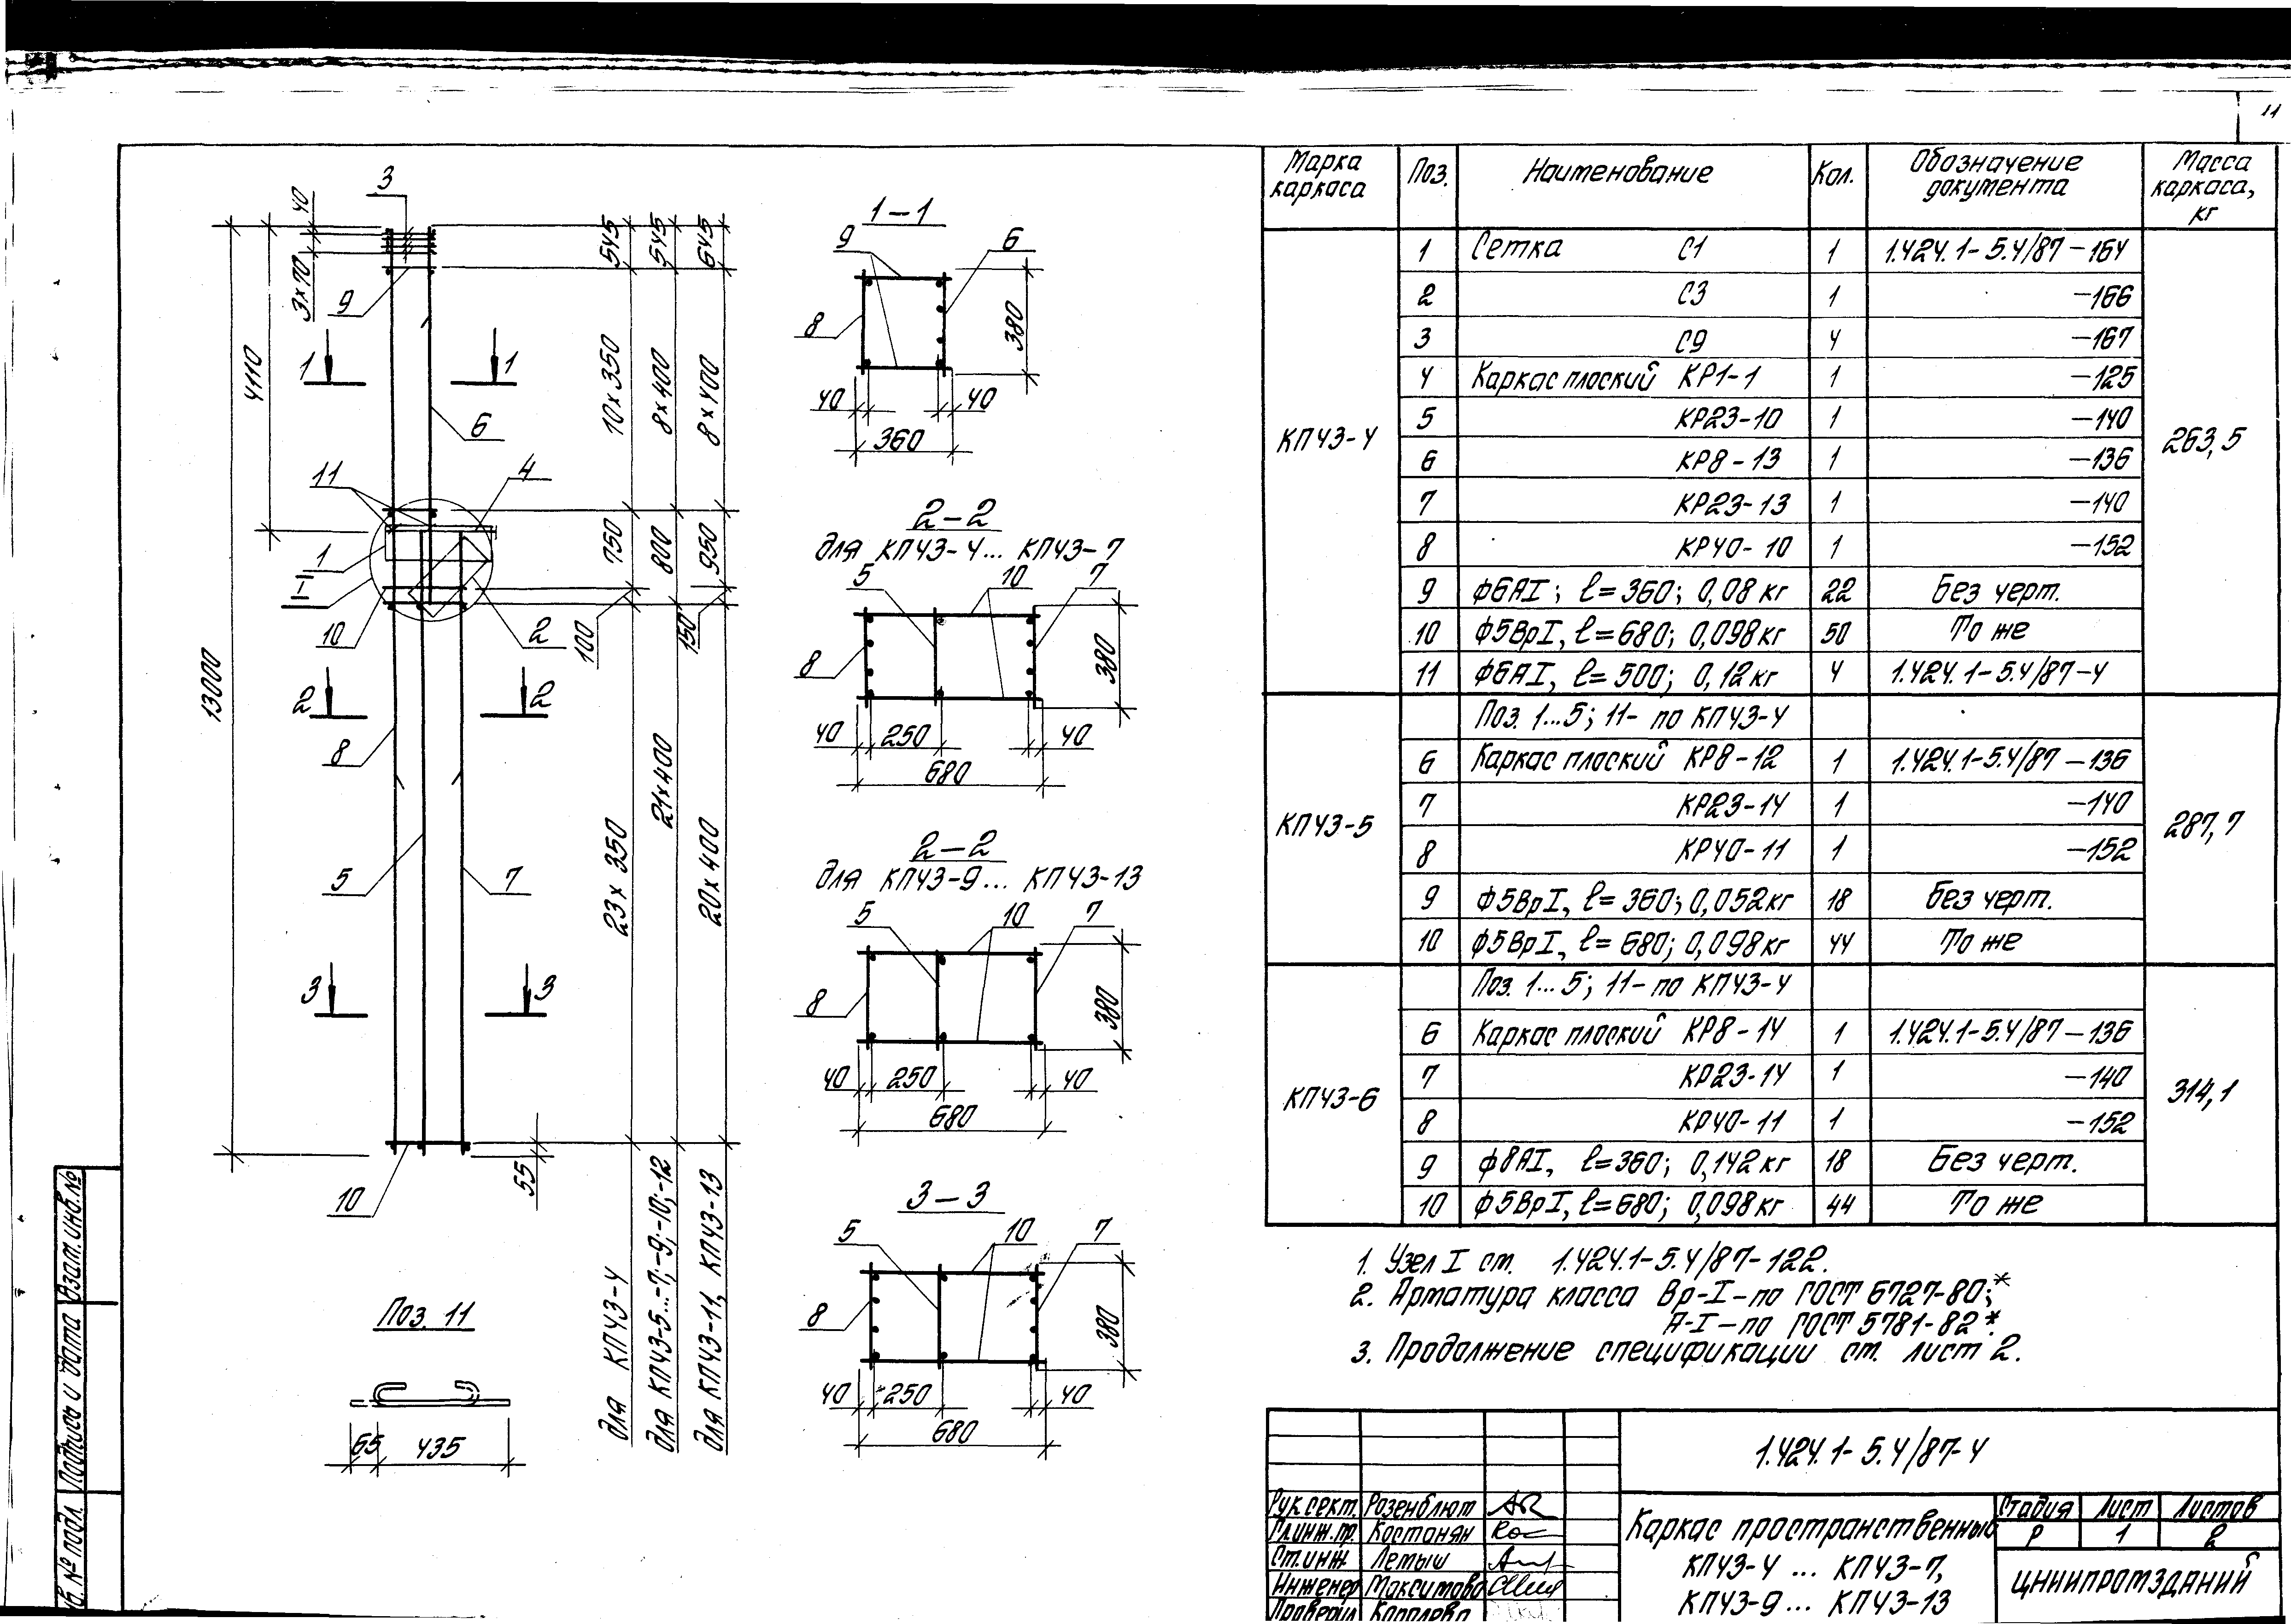 11
3
40
3×70
9
4110
13000
1
1
6
11
4
1
I
10
2
2
2
8
5
7
3
3
10
55
545
545
645
10×350
8×400
8×400
750
800
950
100
150
23×350
21×400
20×400
для КП43-4
для КП43-5...-7;-9;-10;-12
для КП43-11, КП43-13
Поз. 11
65
435
1-1
9
6
8
380
40
40
360
2-2
для КП43-4... КП43-7
5
10
7
8
380
40
250
40
680
2-2
для КП43-9... КП43-13
5
10
7
8
380
40
250
40
680
3-3
5
10
7
8
380
40
250
40
680
Марка каркаса Поз. Наименование Кол. Обозначение документа Масса каркаса, кг
КП43-4
263,5
1 Сетка С1 1 1.424.1-5.4/87-164
2 С3 1 -166
3 С9 4 -167
4 Каркас плоский КР1-1 1 -125
5 КР23-10 1 -140
6 КР8-13 1 -136
7 КР23-13 1 -140
8 КР40-10 1 -152
9 ф6АI; ℓ=360; 0,08кг 22 Без черт.
10 ф5ВрI, ℓ=680; 0,098кг 50 То же
11 ф6АI, ℓ=500; 0,12кг 4 1.424.1-5.4/87-4
КП43-5
287,7
Поз. 1...5; 11- по КП43-4
6 Каркас плоский КР8-12 1 1.424.1-5.4/87-136
7 КР23-14 1 -140
8 КР40-11 1 -152
9 ф5ВрI, ℓ=360; 0,052кг 18 Без черт.
10 ф5ВрI, ℓ=680; 0,098кг 44 То же
КП43-6
314,1
Поз. 1...5; 11- по КП43-4
6 Каркас плоский КР8-14 1 1.424.1-5.4/87-136
7 КР23-14 1 -140
8 КР40-11 1 -152
9 ф8АI, ℓ=360; 0,142кг 18 Без черт.
10 ф5ВрI, ℓ=680; 0,098кг 44 То же
1. Узел I см. 1.424.1-5.4/87-122.
2. Арматура класса Вр-I-по ГОСТ 6727-80;*
А-I-по ГОСТ 5781-82*.
3. Продолжение спецификации см. лист 2.
1.424.1-5.4/87-4
Рук.сект. Розенблюм
Гл.инж.пр. Костанян
Ст.инж. Лемыш
Инженер Максимова
Проверил
Каркас пространственный
КП43-4 ... КП43-7,
КП43-9... КП43-13
Стадия Лист Листов
Р 1 2
ЦНИИПРОМЗДАНИЙ
Взам.инв.№
Подпись и дата
№ подл.